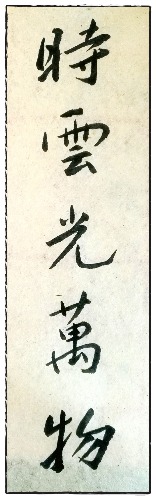 時雲光萬物